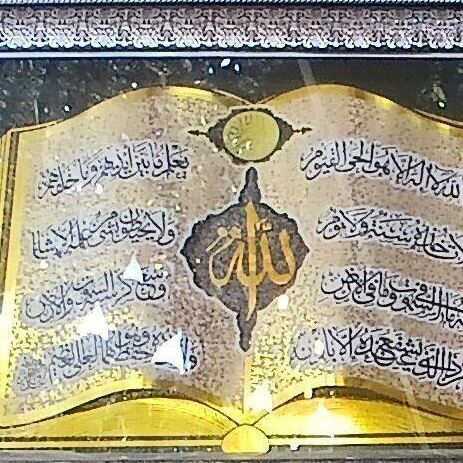 الله لا اله الا هو الحي القيوم
لا تأخذه سنة ولا نوم
له ما في السموات وما في الارض
من ذا الذي يشفع عنده الا باذنه
يعلم ما بين ايديهم وما خلفهم
ولا يحيطون بشئ من علمه الا بما شاء
وسع كرسيه السموات والارض
ولا يؤده حفظهما وهو العلي العظيم
الله